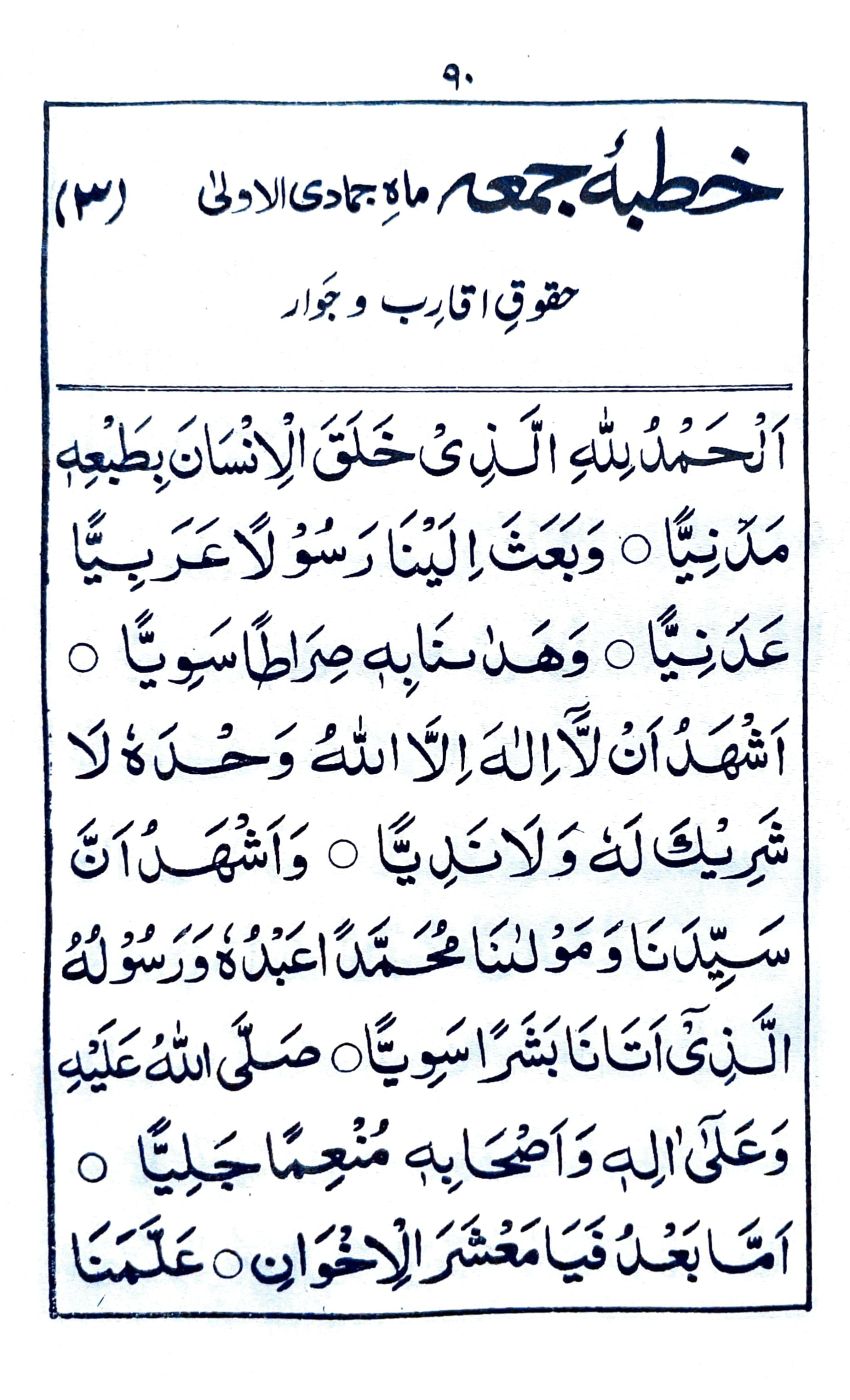 ۹۰
خطبۂ جمعہ ماہِ جمادی الاولیٰ (۳)
حقوقِ اقارِب و جَوار
اَلْحَمْدُ لِلّٰهِ الَّذِیْ خَلَقَ الْاِنْسَانَ بِطَبْعِهٖ
مَدَنِیًّا ○ وَبَعَثَ اِلَیْنَا رَسُوْلًا عَرَبِیًّا
عَدَنِیًّا ○ وَهَدٰىنَا بِهٖ صِرَاطًا سَوِیًّا ○
اَشْهَدُ اَنْ لَّاۤ اِلٰهَ اِلَّا اللّٰهُ وَحْدَهٗ لَا
شَرِیْكَ لَهٗ وَلَا نَدِیًّا ○ وَاَشْهَدُ اَنَّ
سَیِّدَنَا وَمَوْلٰىنَا مُحَمَّدًا عَبْدُهٗ وَرَسُوْلُهُ
الَّذِیْۤ اَتَانَا بَشَرًا سَوِیًّا ○ صَلَّی اللّٰهُ عَلَیْهِ
وَعَلٰۤی اٰلِهٖ وَاَصْحَابِهٖ مُنْعِمًا جَلِیًّا ○
اَمَّا بَعْدُ فَیَا مَعْشَرَ الْاِخْوَانِ ○ عَلَّمَنَا